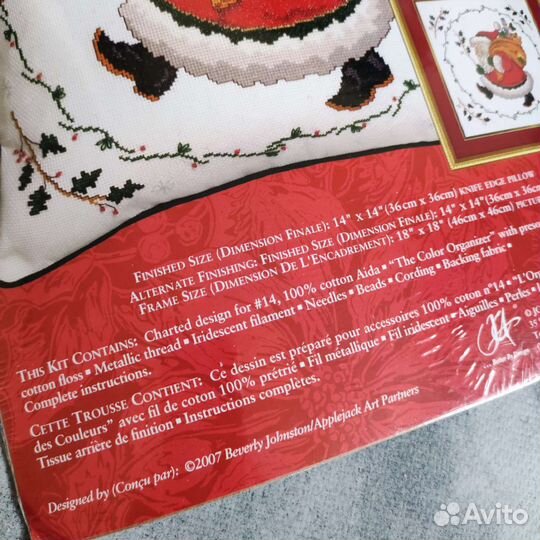 FINISHED SIZE (DIMENSION FINALE): 14" X 14"(36cm x 36cm) KNIFE EDGE PILLOW
ALTERNATE FINISHING: FINISHED SIZE (DIMENSION FINALE): 14" X 14"(36cm x 36cm)
FRAME SIZE (DIMENSION DE L'ENCADREMENT): 18" X 18" (46cm x 46cm)
THIS KIT CONTAINS: Charted design for #14, 100% cotton Aida ▪ "The Color Organizer" with
cotton floss ▪ Metallic thread ▪ Iridescent filament ▪ Needles ▪ Beads ▪ Cording ▪ Backing fabric ▪
Complete instructions.
CETTE TROUSSE CONTIENT: Ce dessin est préparé pour accessoires 100% coton n°14 ▪
des Couleurs" avec fil de coton 100% prétrié ▪ Fil métallique ▪ Fil iridescent ▪ Aiguilles ▪ Perles ▪
Tissue arrière de finition ▪ Instructions complètes.
Designed by (Conçu par): ©2007 Beverly Johnston/Applejack Art Partners
Avito